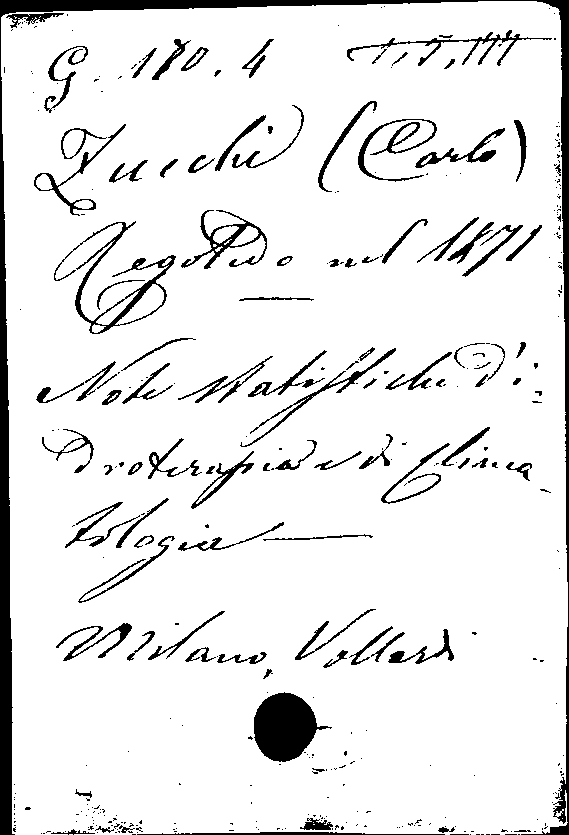 G. 180. 4
Zucchi (Carlo)
Regoledo nel 1871
Note statistiche d'i=
droterapia e di Clima-
tologia
Milano, Vallardi